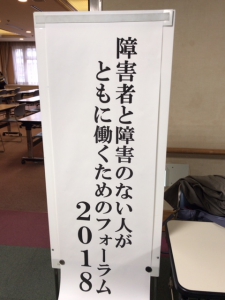 障害者と障害のない人が
ともに働くためのフォーラム
2018